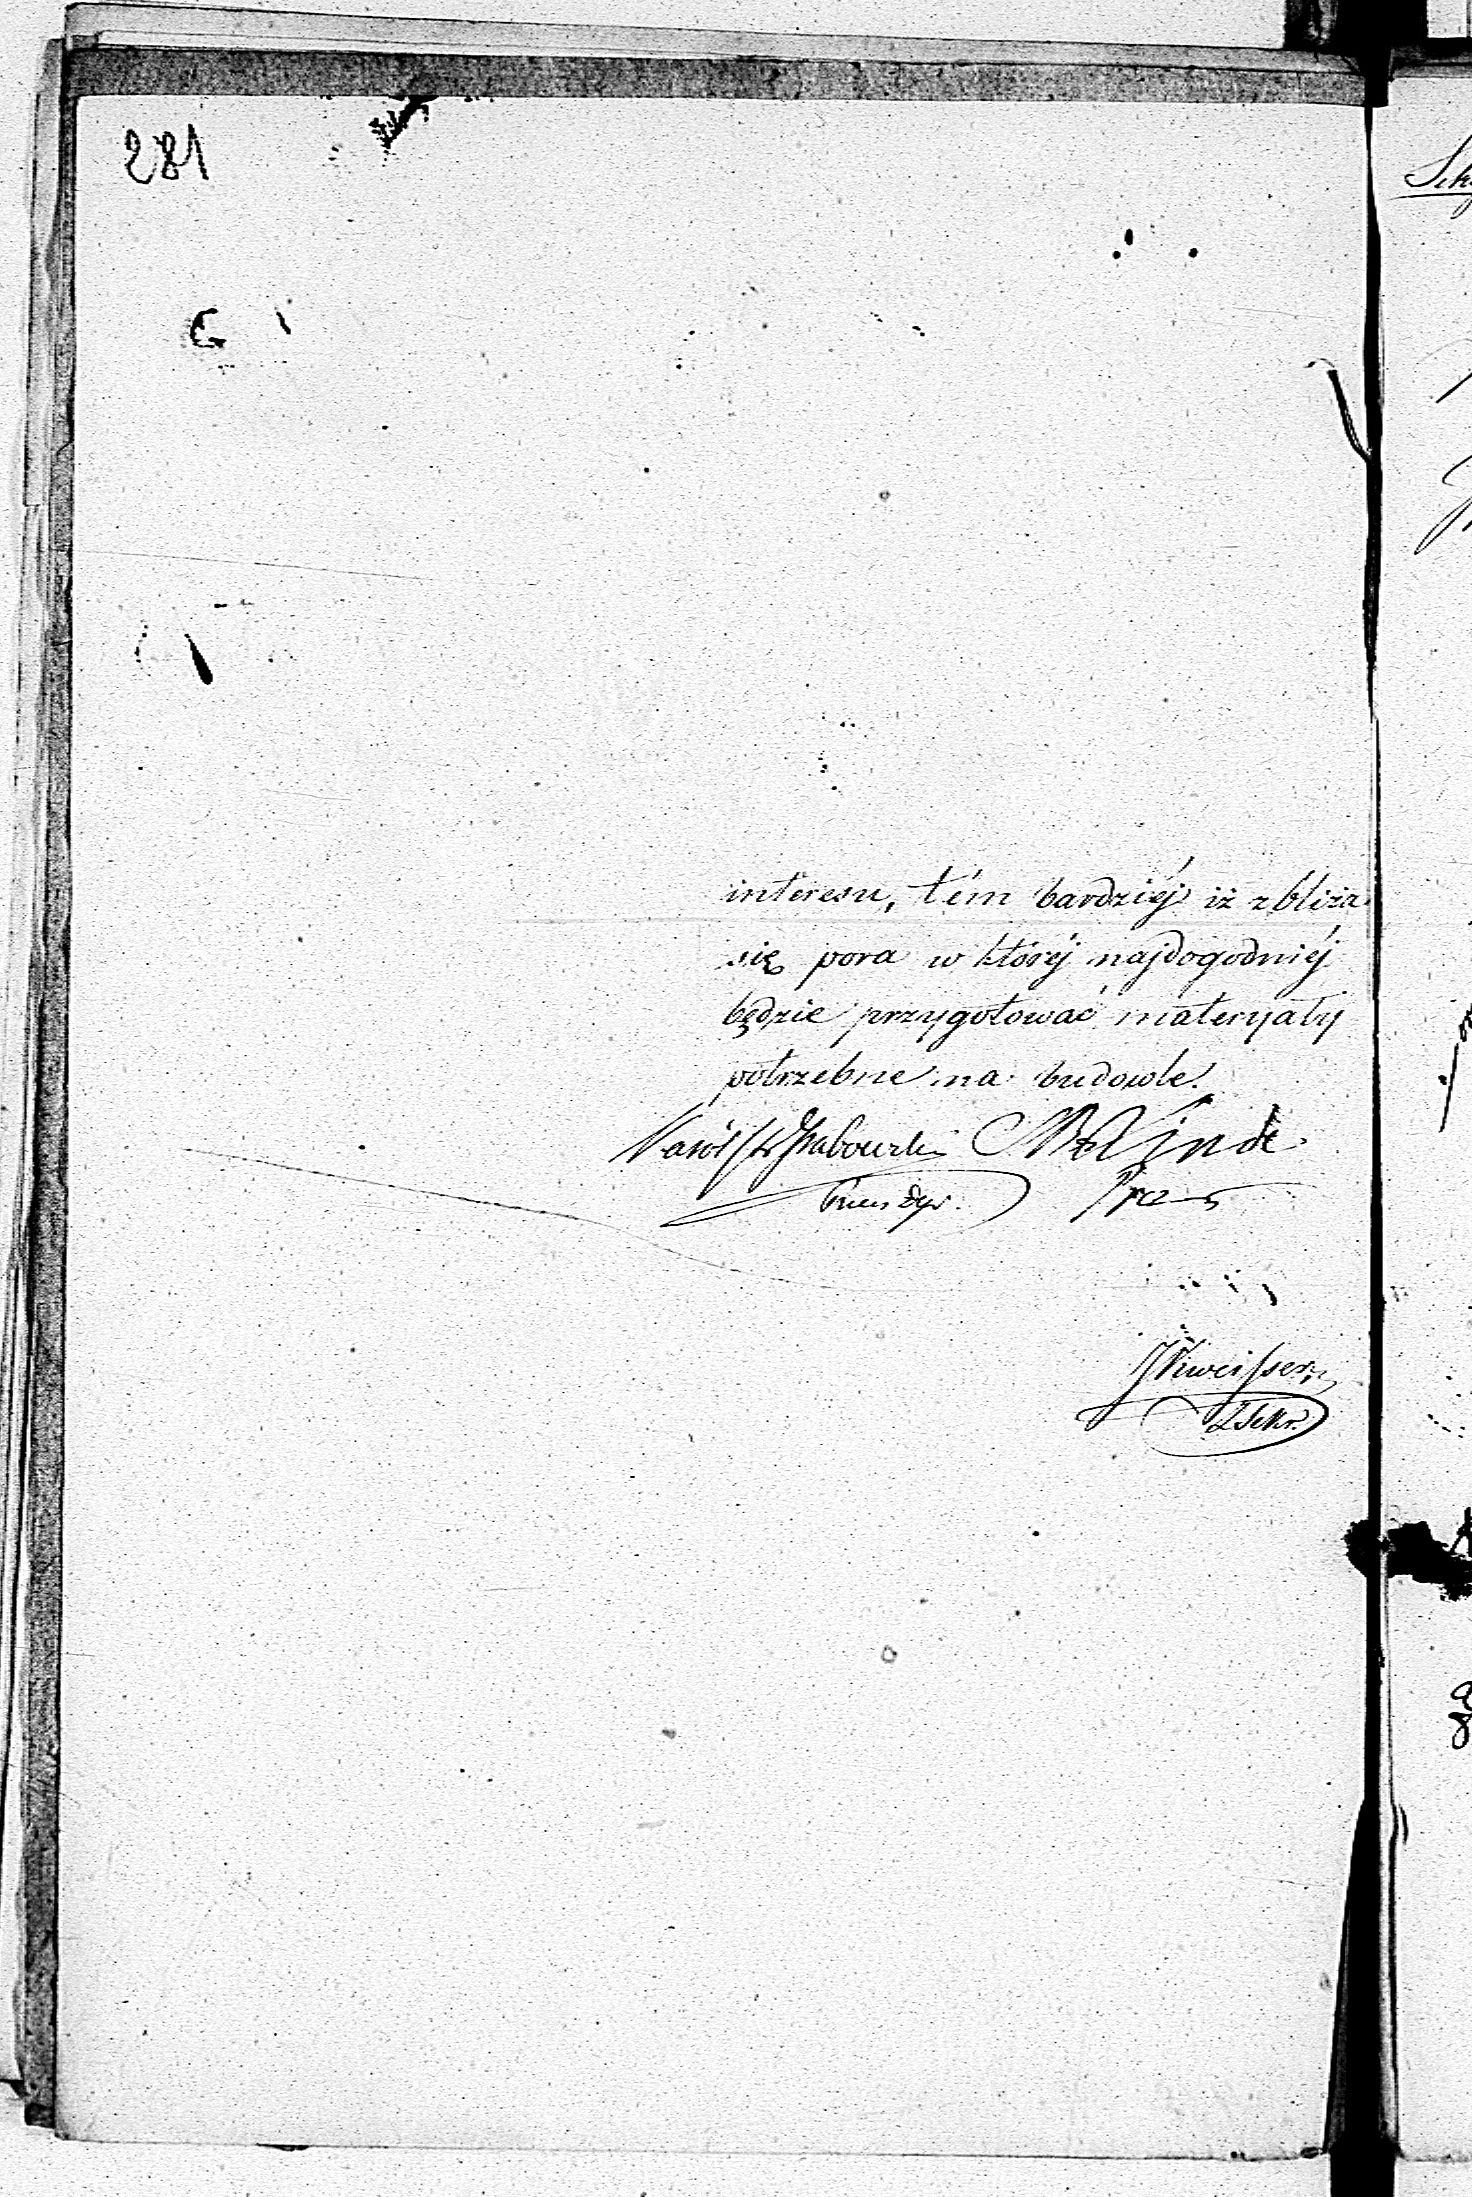 281
interesu, tém bardziéj iż zbliża
się pora w któréj najdogodniéj
będzie przygotować materyały
potrzebne na budowle.
Karól Grabowski Linde
Prez
2 Sekr.